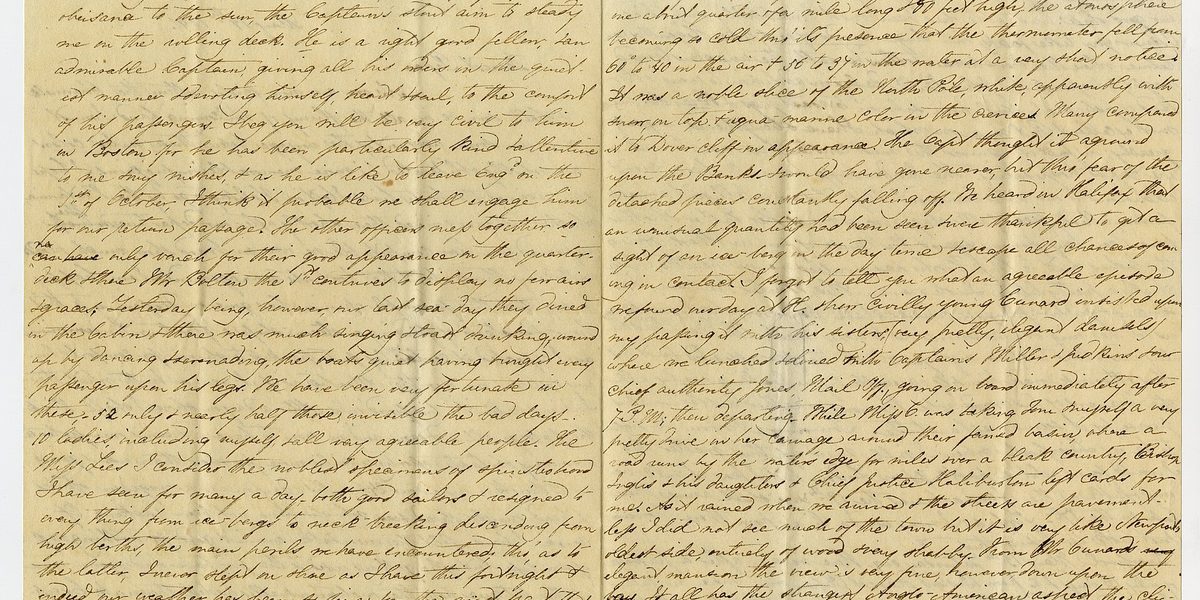 obeisance to the sun, the Captain's stout arm to steady
me on the rolling deck. He is a right good fellow, & an
admirable Captain, giving all his orders in the quiet-
est manner & devoting himself, heart & soul, to the comfort
of his passengers. I beg you will be very civil to him
in Boston for he has been particularly kind & attentive
to me & my wishes, & as he is like to leave Eng.d on the
1st of October, I think it probable we shall engage him
for our return passage. The other officers mess together so
we can only vouch for their good appearance on the quarter-
deck & there Mr Bolton the 1st contrives to display no few airs
& graces. Yesterday being, however, our last sea day they dined
in the Cabin & there was much singing & toast drinking, wound
up by dancing & serenading, the boats quiet having brought every
passenger upon his legs. We have been very fortunate in
these. 52 only & nearly half those invisible the bad days.
10 ladies including myself & all very agreeable people. The
Miss Lees I consider the noblest specimens of spinsterhood
I have seen for many a day, both good sailors & resigned to
every thing from ice bergs to neck breaking descending from
high berths, the main perils we have encountered, tho', as to
the latter, I never slept on shore as I have this fortnight &
indeed our weather has been
me about quarter of a mile long & 80 feet high, the atmosphere
becoming so cold thro' its presence that the thermometer fell from
60° to 40 in the air & 56 to 37 in the water at a very short notice.
It was a noble slice of the North Pole, white, apparently with
snow, on top & aqua marine color in the crevices. Many compared
it to Dover cliff in appearance. The Capt thought it aground
upon the Banks & would have gone nearer but this fear of the
detached pieces constantly falling off. We heard in Halifax that
an unusual quantity had been seen & were thankful to get a
sight of an ice-berg in the day time & escape all chances of com-
ing in contact. I forgot to tell you what an agreeable episode
we found our day at H. Shore Civilly young Cunard insisted upon
my passing it with his sisters, (very pretty, elegant damsels)
where we lunched & dined with Captains Miller & Judkins & our
chief authority Jones Mail Off, going on board immediately after
7 P.M, then departing. While Miss C. was taking Tom & myself a very
pretty drive in her carriage around their famed basin, where a
road runs by the water's edge for miles over a bleak country, Bishop
Inglis & his daughters & Chief Justice Haliburton left cards for
me. As it rained when we arrived & the streets are pavement-
less I did not see much of the town but it is very like Newport's
oldest side, entirely of wood & very shabby. From Mr Cunard's
elegant mansion the view is very fine, however, down upon the
bay. It all has the strangest Anglo-American aspect, the